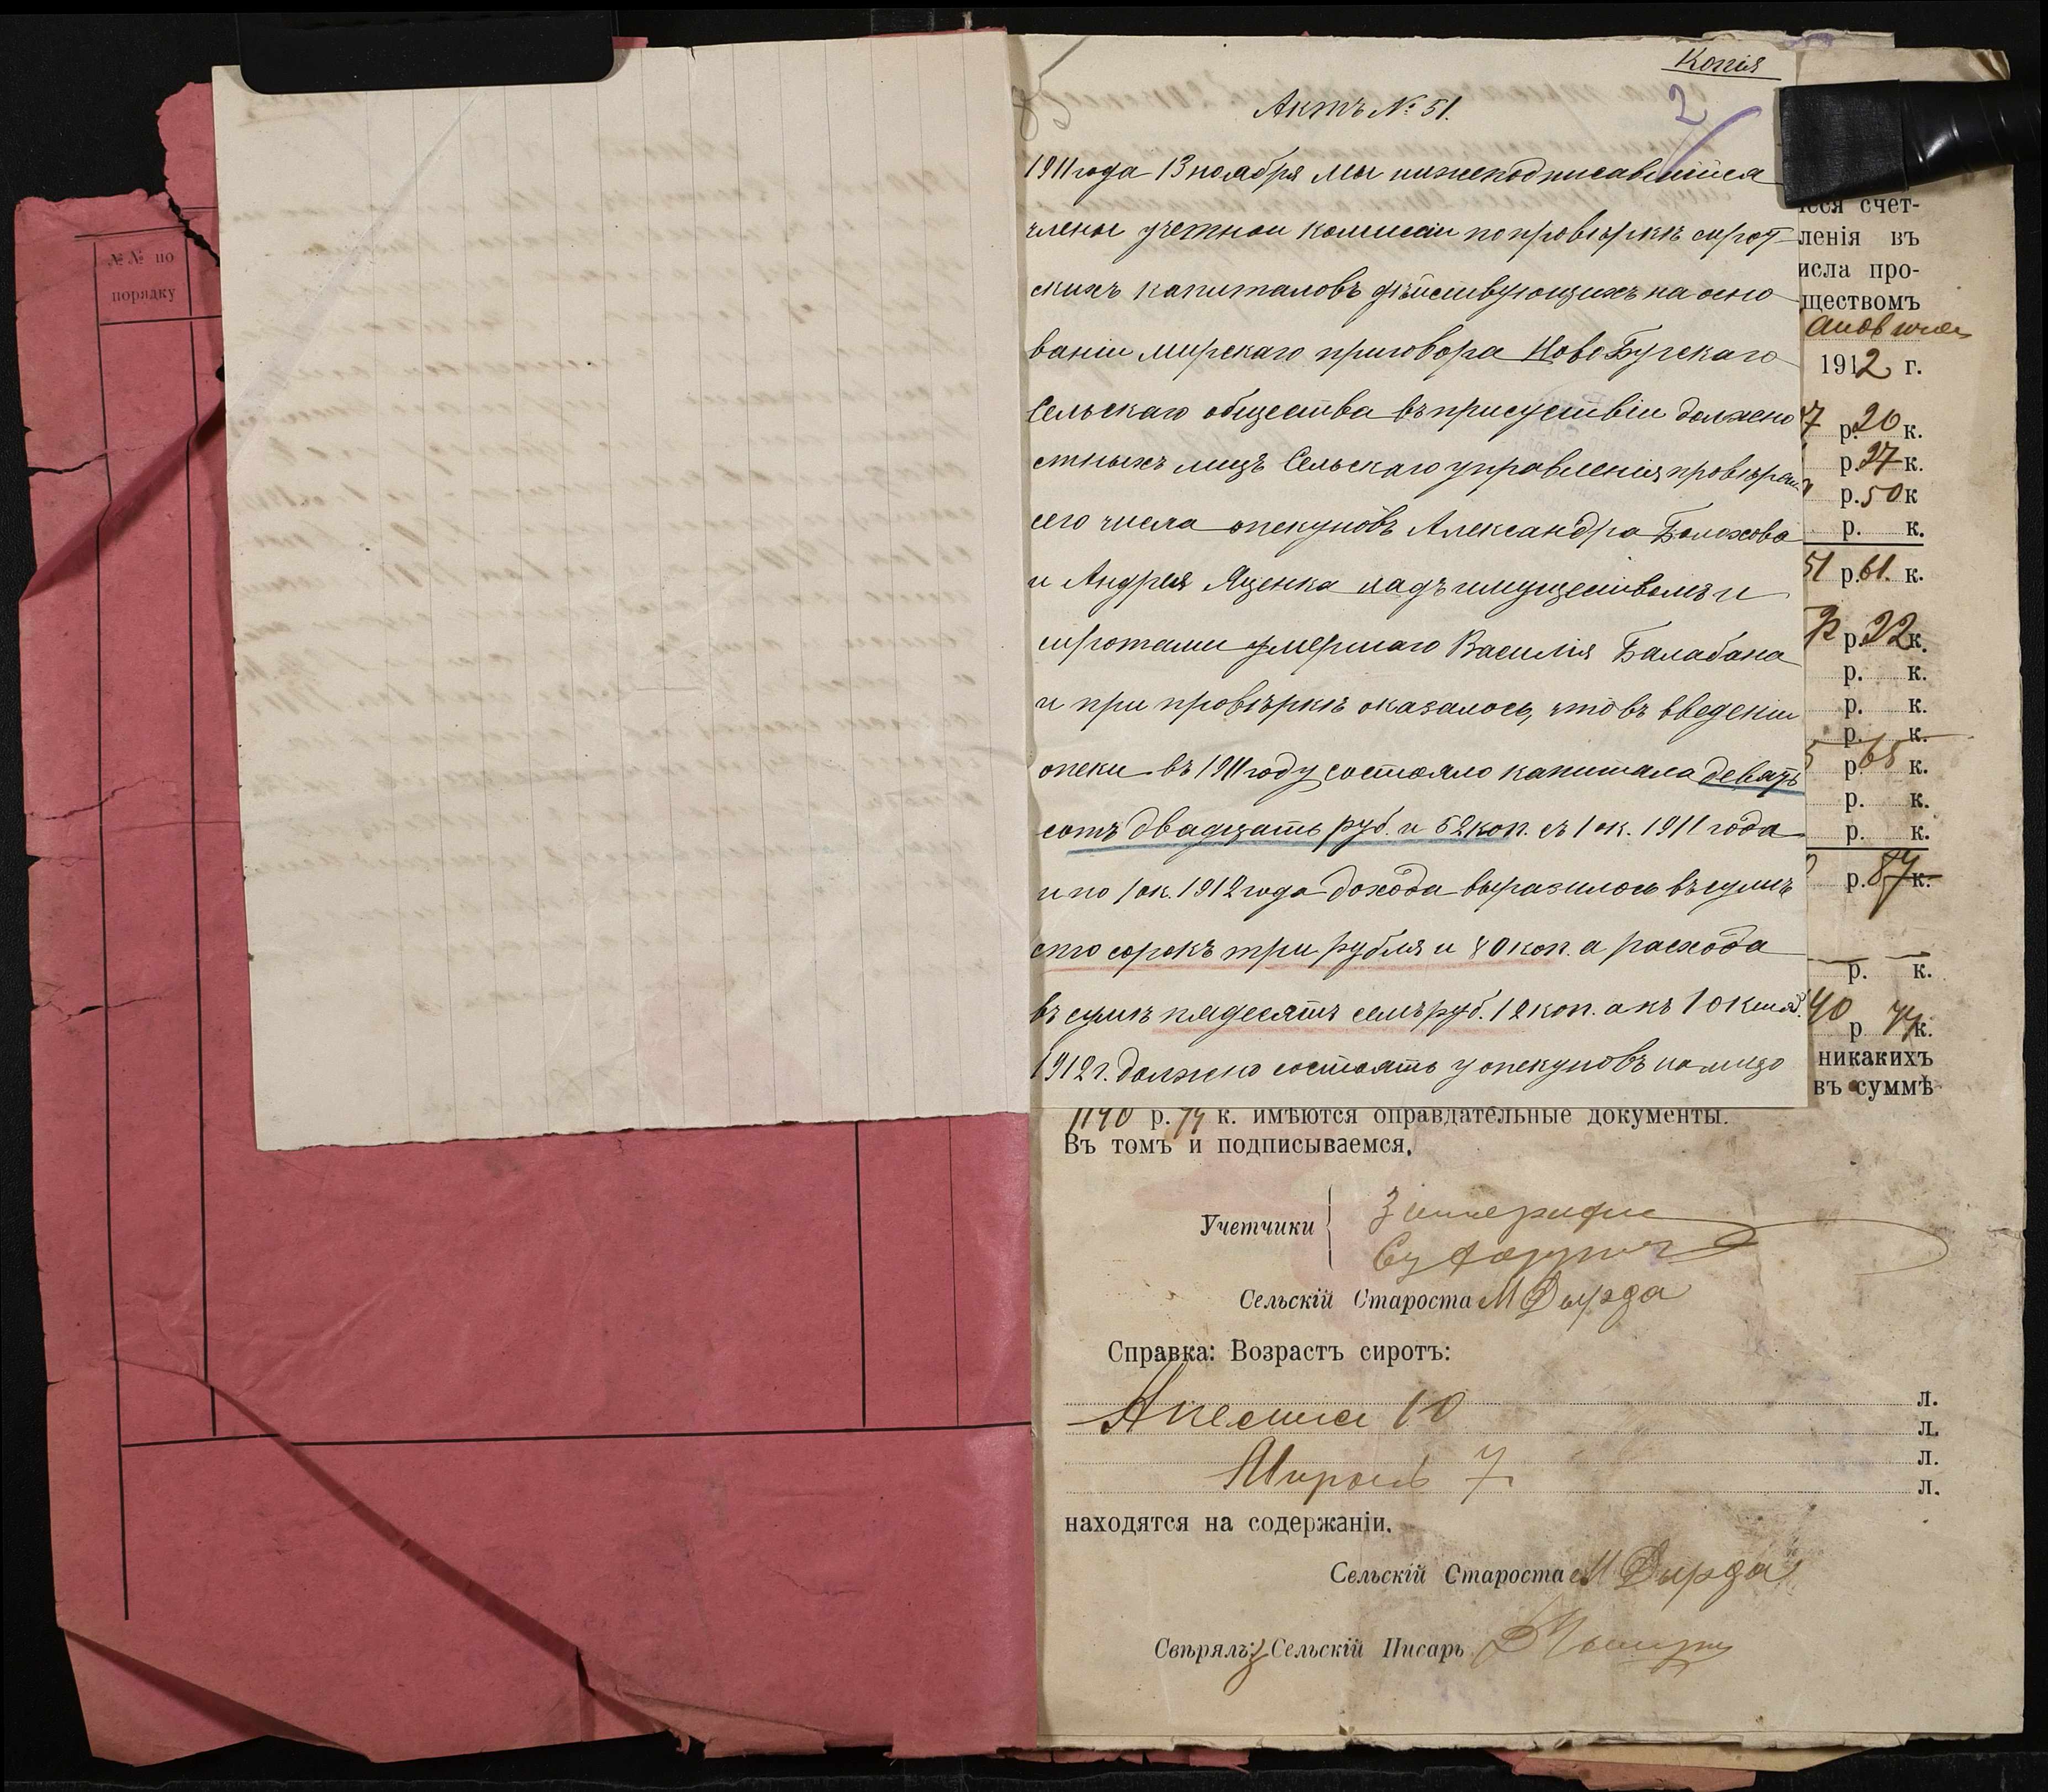 №№ по
порядку
Копія
2
Актъ № 51.
1911 года 13 ноября мы нижеподписавшійся
члены учетной комисіи по провѣркѣ сирот
скихъ капиталовъ дѣйствующихъ на осно
ваніи мирскаго приговора Ново Бугскаго
Сельскаго общества въ присуствіи должно
стныхъ лицъ Сельскаго управленія провѣрили
сего числа опекуновъ Александра Болохова
и Андрея Яценка надъ имуществомъ и
сиротами умершаго Василія Балабана
и при провѣркѣ оказалось, что въ введеніи
опеки въ 1911 году состояло капитала девять
сотъ двадцать руб. и 62 коп. съ 1 ок. 1911 года
и по 1 ок. 1912 года дохода выразилось въ сумѣ
сто сорокъ три рубля и 80 коп. а расхода
въ сумѣ пядесятъ семь руб. 12 коп. а къ 1 октяб.
1912 г. должно состоять у опекуновъ на лицо
счет-
ленія въ
исла про-
ществомъ
1912 г.
7 р. 20 к.
р. 27 к.
р. 50 к
р. к.
51 р. 61. к.
р. 22 к.
р. к.
р. к.
р. к.
5 р. 65 к.
р. к.
р. к.
р. 87 к.
р. к.
40 р 74 к.
никакихъ
въ суммѣ
1140 р. 74 к. имѣются оправдательные документы.
Въ томъ и подписываемся.
Учетчики
Сельскій Староста М Дырда
Справка: Возрастъ сиротъ:
л.
Анесиа 10 л.
л.
Миронъ 7 л.
находятся на содержаніи.
Сельскій Староста М Дырда
Свѣрялъ: Сельскій Писарь